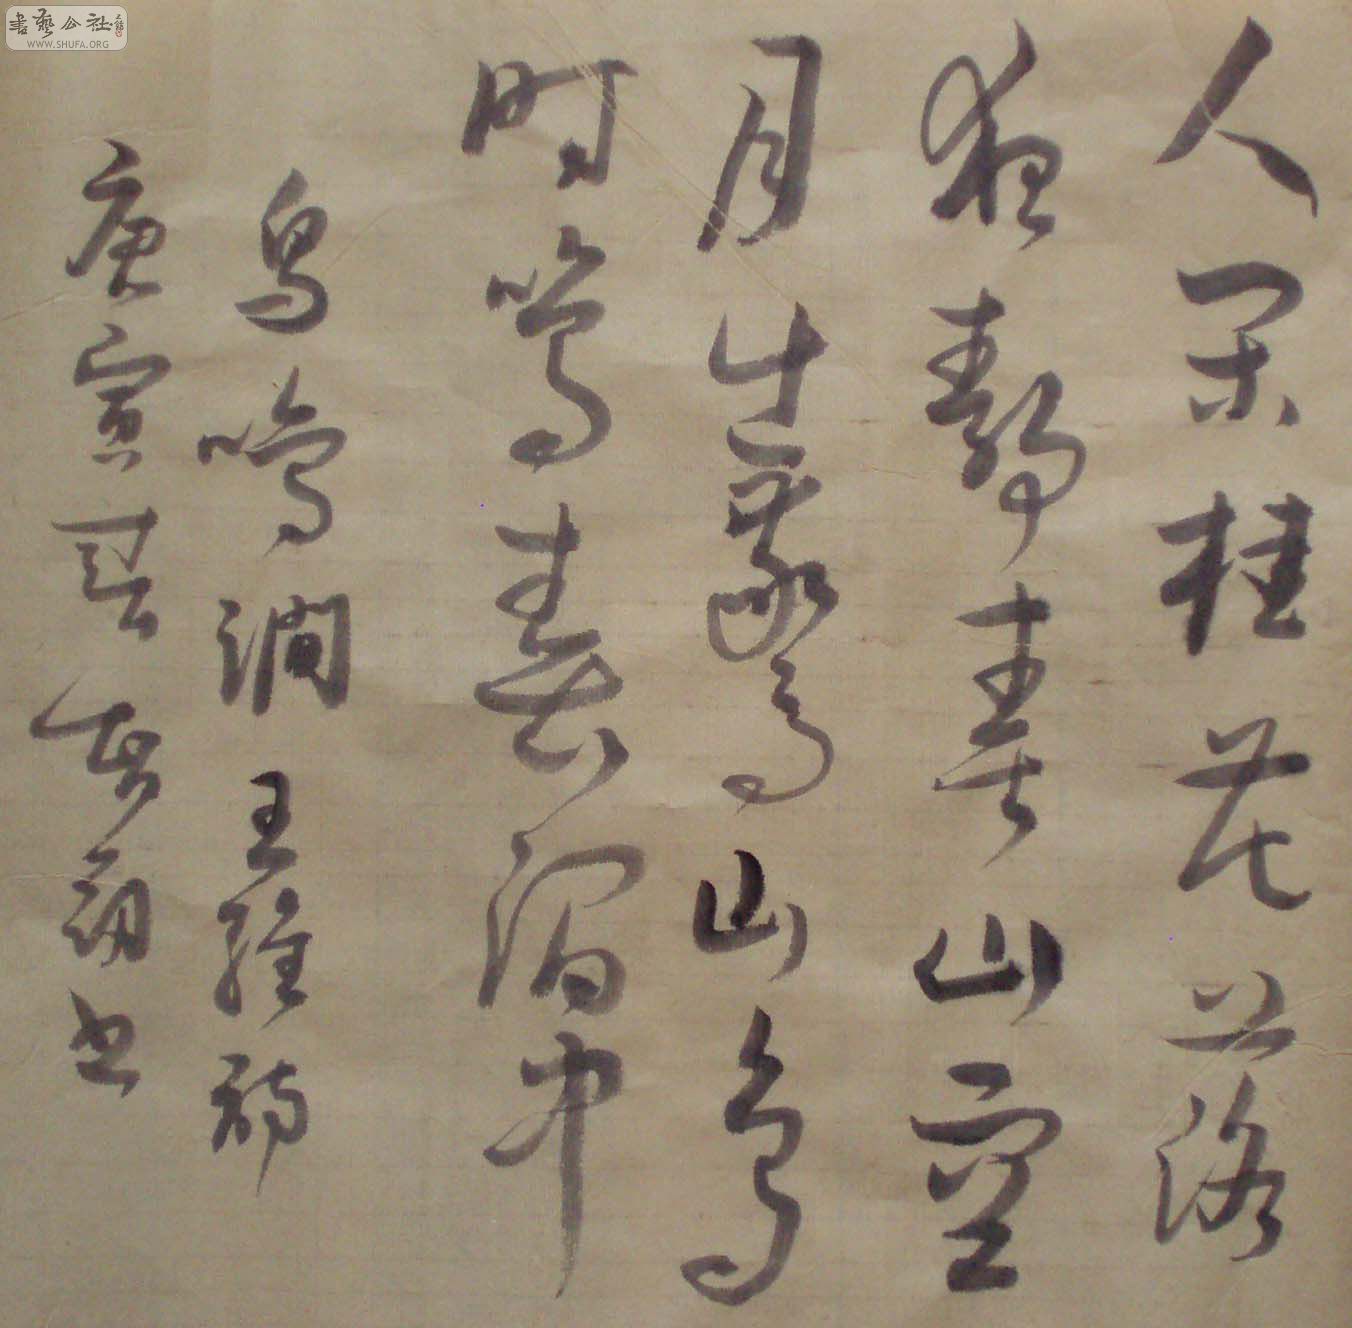 書藝公社
WWW.SHUFA.ORG
人閑桂花落
夜靜春山空
月出驚山鳥
时鳴春澗中
鳥鳴澗王維詩
庚寅書